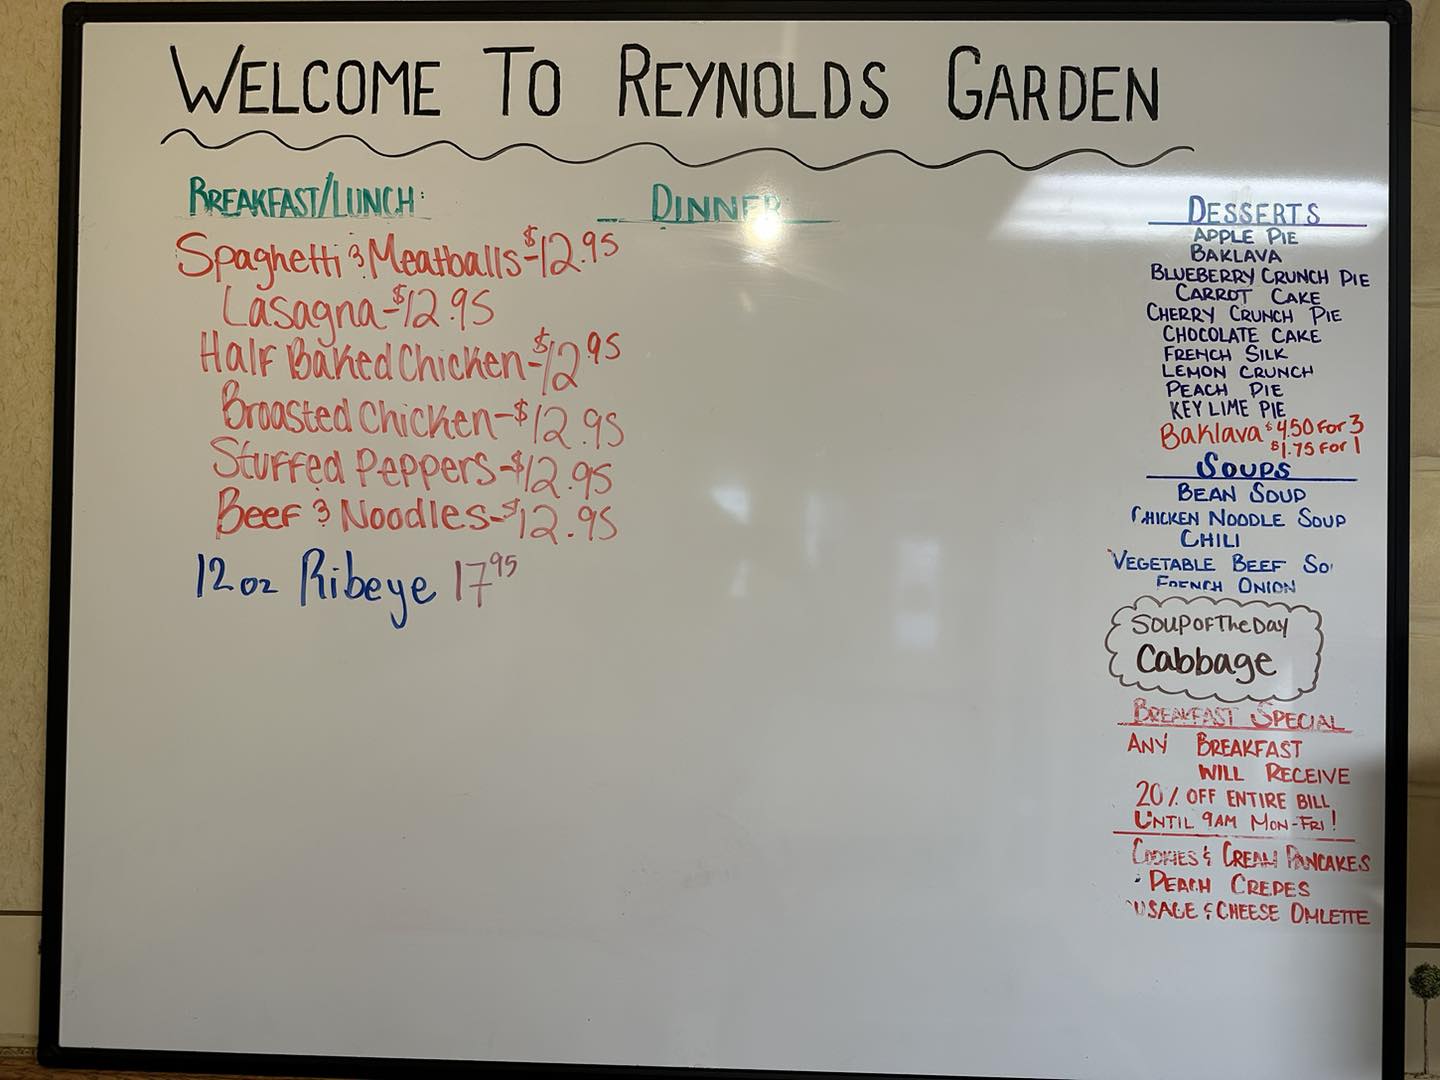 WELCOME TO REYNOLDS GARDEN
BREAKFAST/LUNCH:
Spaghetti & Meatballs-$12.95
Lasagna-$12.95
Half Baked Chicken-$12.95
Broasted Chicken-$12.95
Stuffed Peppers-$12.95
Beef & Noodles-$12.95
12oz Ribeye 17.95
DINNER
DESSERTS
APPLE PIE
BAKLAVA
BLUEBERRY CRUNCH PIE
CARROT CAKE
CHERRY CRUNCH PIE
CHOCOLATE CAKE
FRENCH SILK
LEMON CRUNCH
PEACH PIE
KEY LIME PIE
Baklava $4.50 For 3
$1.75 For 1
SOUPS
BEAN SOUP
CHICKEN NOODLE SOUP
CHILI
VEGETABLE BEEF SO
FRENCH ONION
SOUP OF The DAY
Cabbage
BREAKFAST SPECIAL
ANY BREAKFAST
WILL RECEIVE
20% OFF ENTIRE BILL
UNTIL 9AM MON-FRI!
COOKIES & CREAM PANCAKES
PEACH CREPES
USAGE & CHEESE OMLETTE